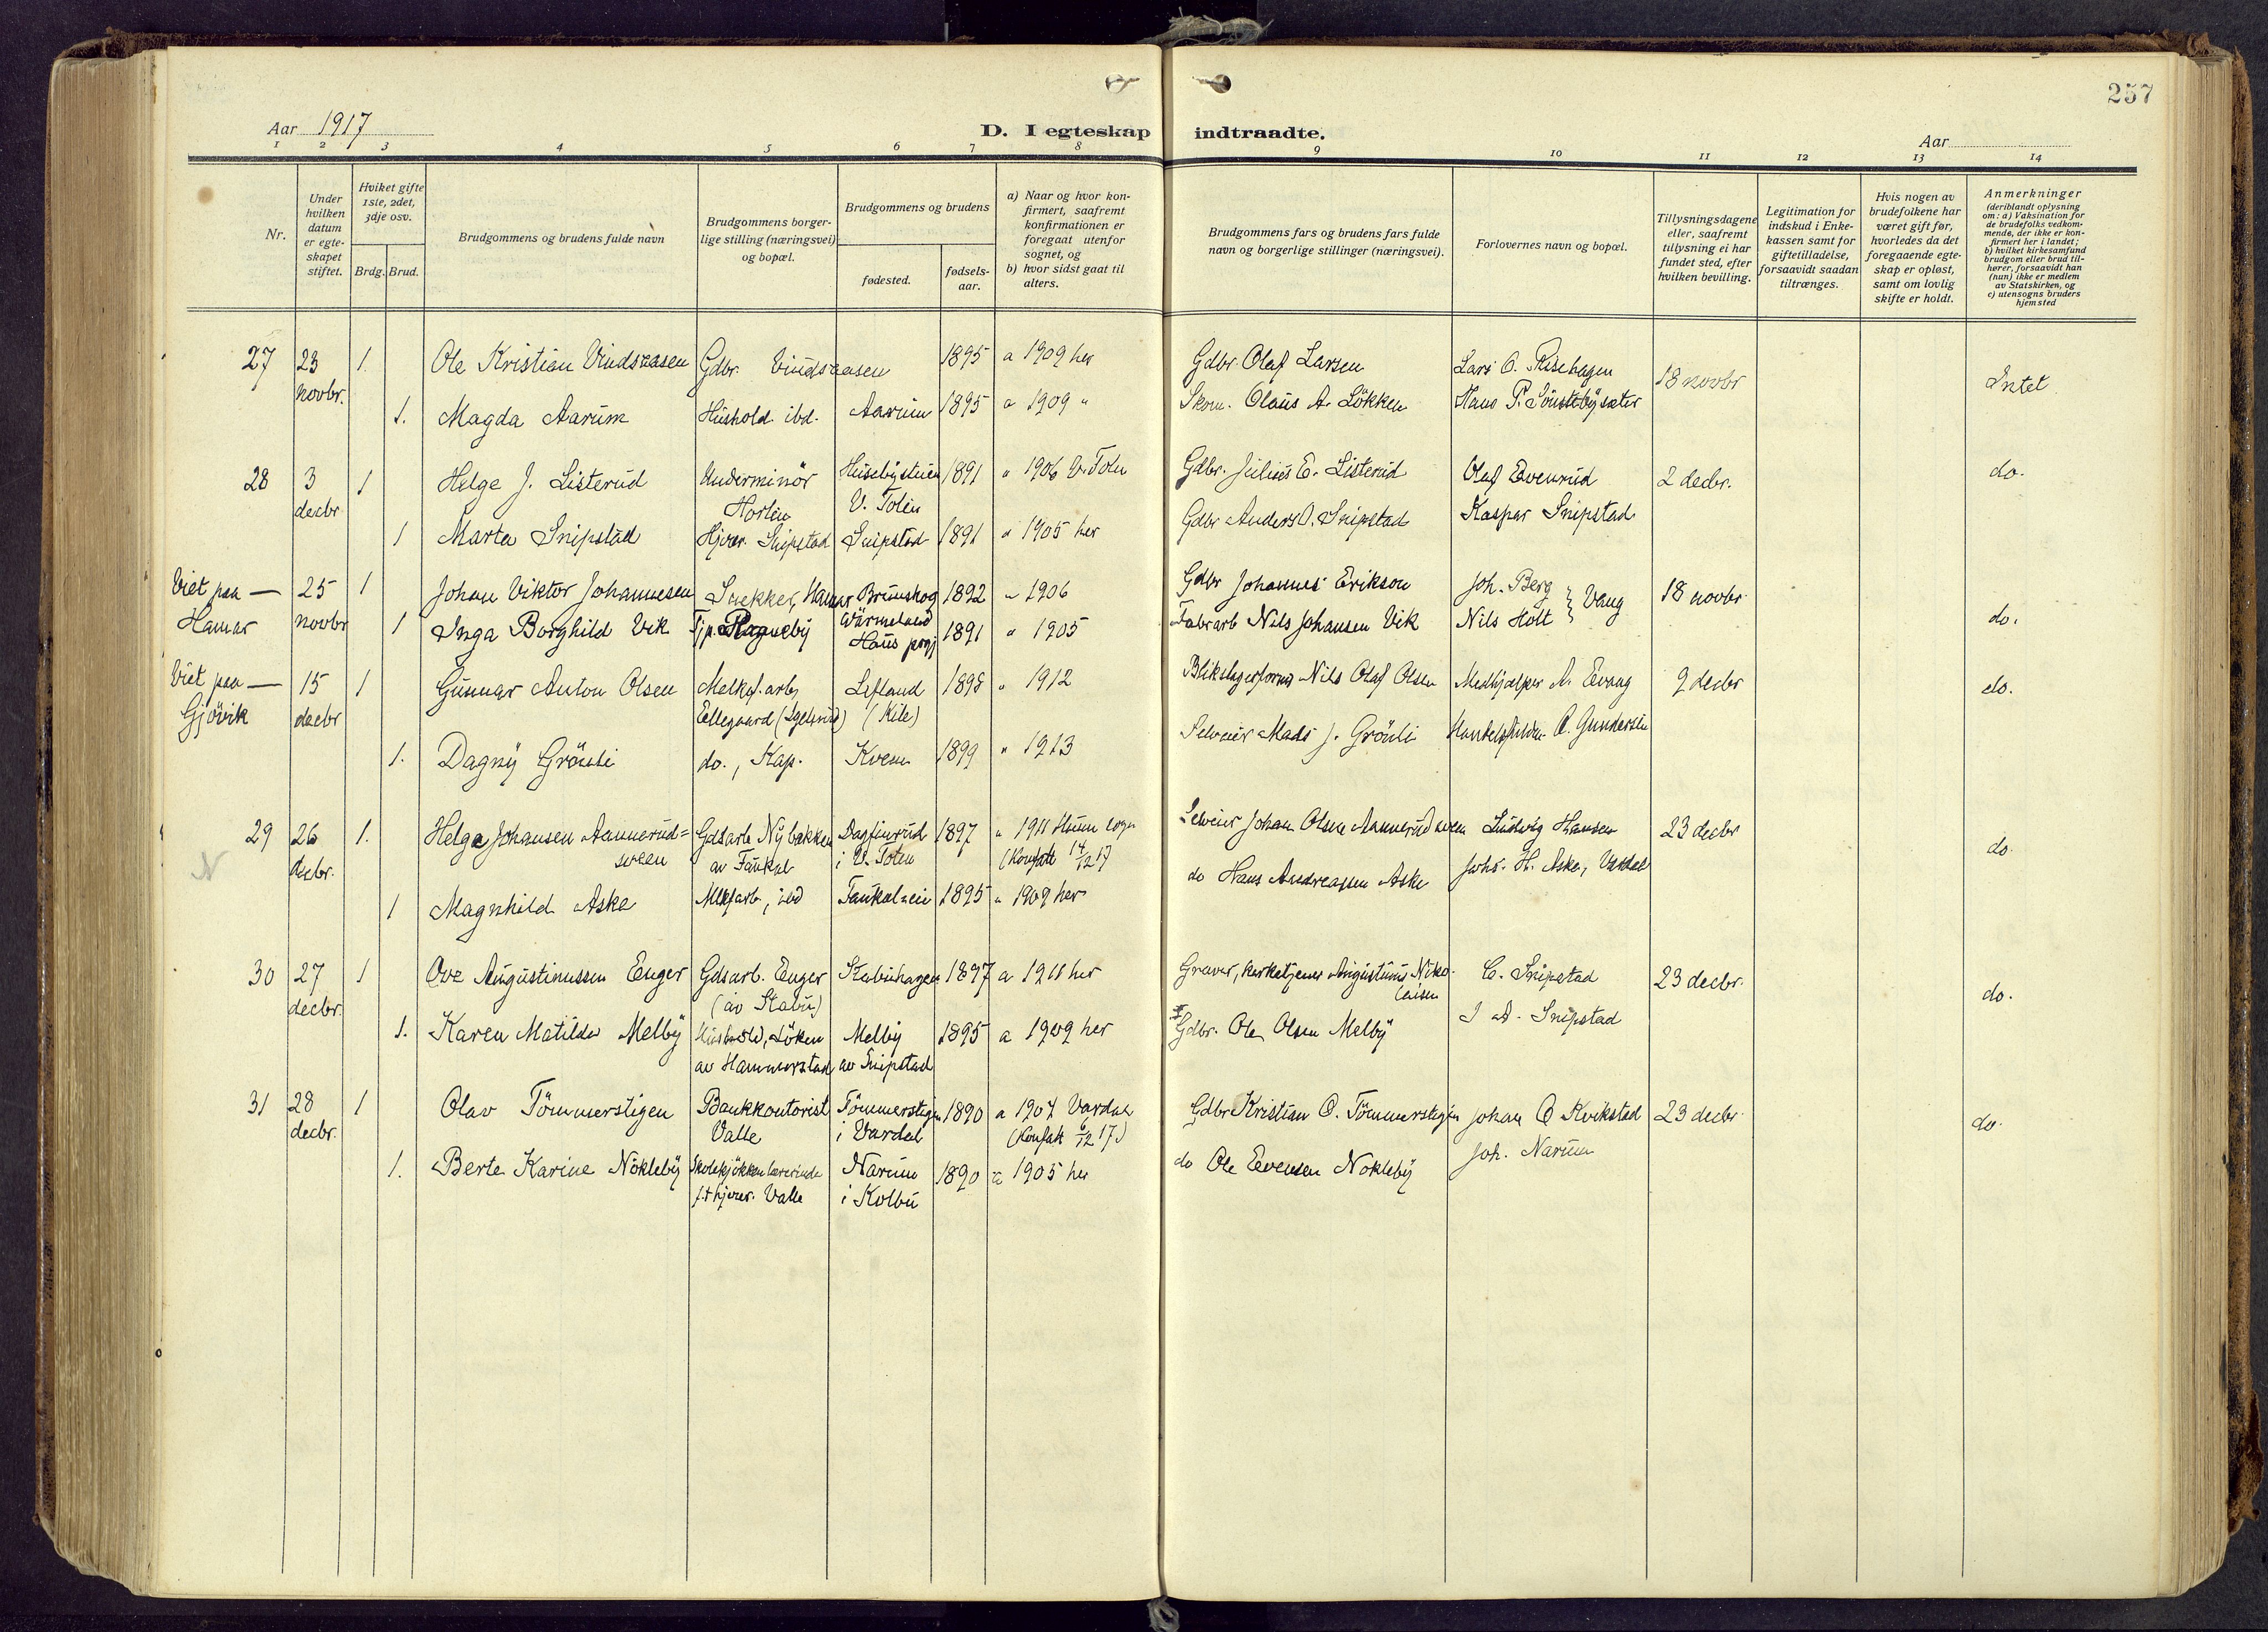 257
Aar 1917
D. I egteskap indtraadte.
Aar
1 2 3 4 5 6 7 8 9 10 11 12 13 14
Nr.
Under hvilken datum er egte-skapet stiftet.
Hviket gifte 1ste, 2det, 3dje osv.
Brdg. Brud.
Brudgommens og brudens fulde navn
Brudgommens borger-lige stilling (næringsvei) og bopæl.
Brudgommens og brudens
fødested.
fødsels-aar.
a) Naar og hvor kon-firmert, saafremt konfirmationen er foregaat utenfor sognet, og
b) hvor sidst gaat til alters.
Brudgommens fars og brudens fars fulde navn og borgerlige stillinger (næringsvei).
Forlovernes navn og bopæl.
Tillysningsdagene eller, saafremt tillysning ei har fundet sted, efter hvilken bevilling.
Legitimation for indskud i Enke-kassen samt for giftetilladelse, forsaavidt saadan tiltrænges.
Hvis nogen av brudefolkene har været gift før, hvorledes da det foregaaende egte-skap er opløst, samt om lovlig skifte er holdt.
Anmerkninger
(deriblandt oplysning om: a) Vaksination for de brudefolks vedkom-mende, der ikke er kon-firmert her i landet;
b) hvilket kirkesamfund brudgom eller brud til-hører, forsaavidt han (hun) ikke er medlem av Statskirken, og
c) utensogns bruders hjemsted
27 23 novbr. 1. Ole Kristian Vindsraasen Gdbr. Vindsraasen 1895 a 1909 her Gdbr. Olaf Larsen Lars O. Risehagen 18 novbr Intet
1. Magda Aarum Hushold. ibd. Aarum 1895 a 1909 " Skom. Olaus A. Lökken Hans P. Sönstebysæter
28 3 decbr 1 Helge J. Listerud Underminör Horten V. Toten 1891 " 1906 V. Toten Gdbr. Julius E. Listerud Olaf Evenrud 2 decbr. do.
1 Marta Snipstad Hjver. Snipstad Snipstad 1891 " 1905 her Gdbr Anders O. Snipstad Kaspar Snipstad
Viet paa — Hamar 25 novbr 1 Johan Viktor Johannesen Snekker, Hamar Brunskog Wärmeland 1892 " 1906 Gdbr Johannes Erikson Joh. Berg Vang 18 novbr do.
1 Inga Borghild Vik Tjp. Ragneby Haus prgj 1891 " 1905 Fabrarb Nils Johansen Vik Nils Holt
Viet paa — Gjövik 15 decbr 1 Gunnar Anton Olsen Melkef. arb Eellegaard 1898 " 1912 Nils Olaf Olsen Medhjælper A. Evang 9 decbr do.
1. Dagny Grönli do., Kap. Kvem 1899 " 1913 Selveier Mads J. Grönli Gundersen
29 26 decbr. 1. Helge Johansen Aannerud=sveen Gdsarb Nybakken av Faukal Dagfinrud i V. Toten 1897 " 1911 Hunn sogn (Konfatt 14/12 17) Selveier Johan Olsen Aannerudsveen Ludvig Hansen 23 decbr do
1 Magnhild Aske Mlkfarb, ibd Faukaleie 1895 " 1909 her do Hans Andreassen Aske Johs. H. Aske, Vardal
30 27 decbr. 1 Ove Augustinussen Enger Gdsarb. Enger (av Stabu) Stabuhagen 1897 a 1911 her Graver, kirketjener Augustinus Nikolaisen C. Snipstad 23 decbr. do.
1. Karen Matilde Melby Hushold, Löken av Hammerstad Melby av Snipstad 1895 a 1909 her Gdbr. Ole Olsen Melby J A. Snipstad
31 28 decbr. 1 Olav Tömmerstigen Bankkontorist Valle Tömmerstigen i Vardal 1890 a 1904 Vardal (Konfatt 6/12 17) Gdbr Kristian O. Tömmerstigen Johan O Kvikstad 23 decbr. do.
1. Berte Karine Nökleby Skolekjökkenlærerinde f.t hjver. Valle Narum i Kolbu 1890 " 1905 her do Ole Evensen Nökleby Joh. Narum